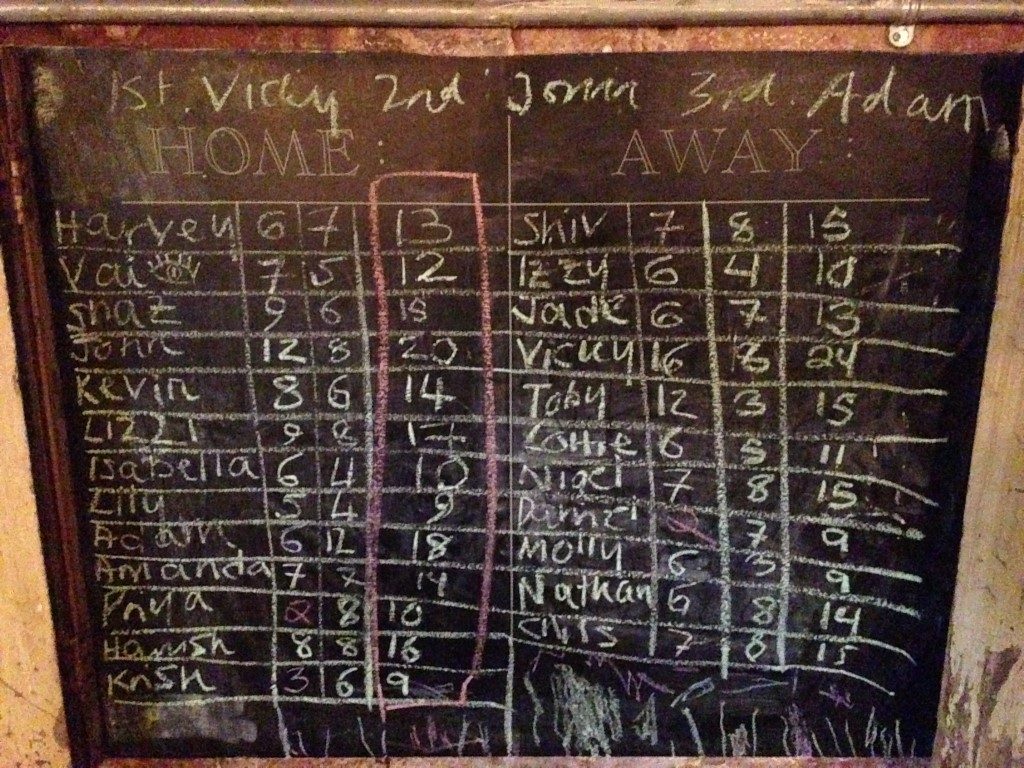 1st. Vicky 2nd John 3rd. Adam
HOME : AWAY :
Harvey 6 7 13 Shiv 7 8 15
Vai 7 5 12 Izzy 6 4 10
Shaz 9 6 15 Jade 6 7 13
John 12 8 20 Vicky 16 8 24
Kevin 8 6 14 Toby 12 3 15
LIZZI 9 8 17 Lottie 6 5 11
Isabella 6 4 10 Nigel 7 8 15
Lily 5 4 9 Daniel 2 7 9
Adam 6 12 18 Molly 6 3 9
Amanda 7 7 14 Nathan 6 8 14
Priya 2 8 10 Chris 7 8 15
Hamish 8 8 16
Krish 3 6 9